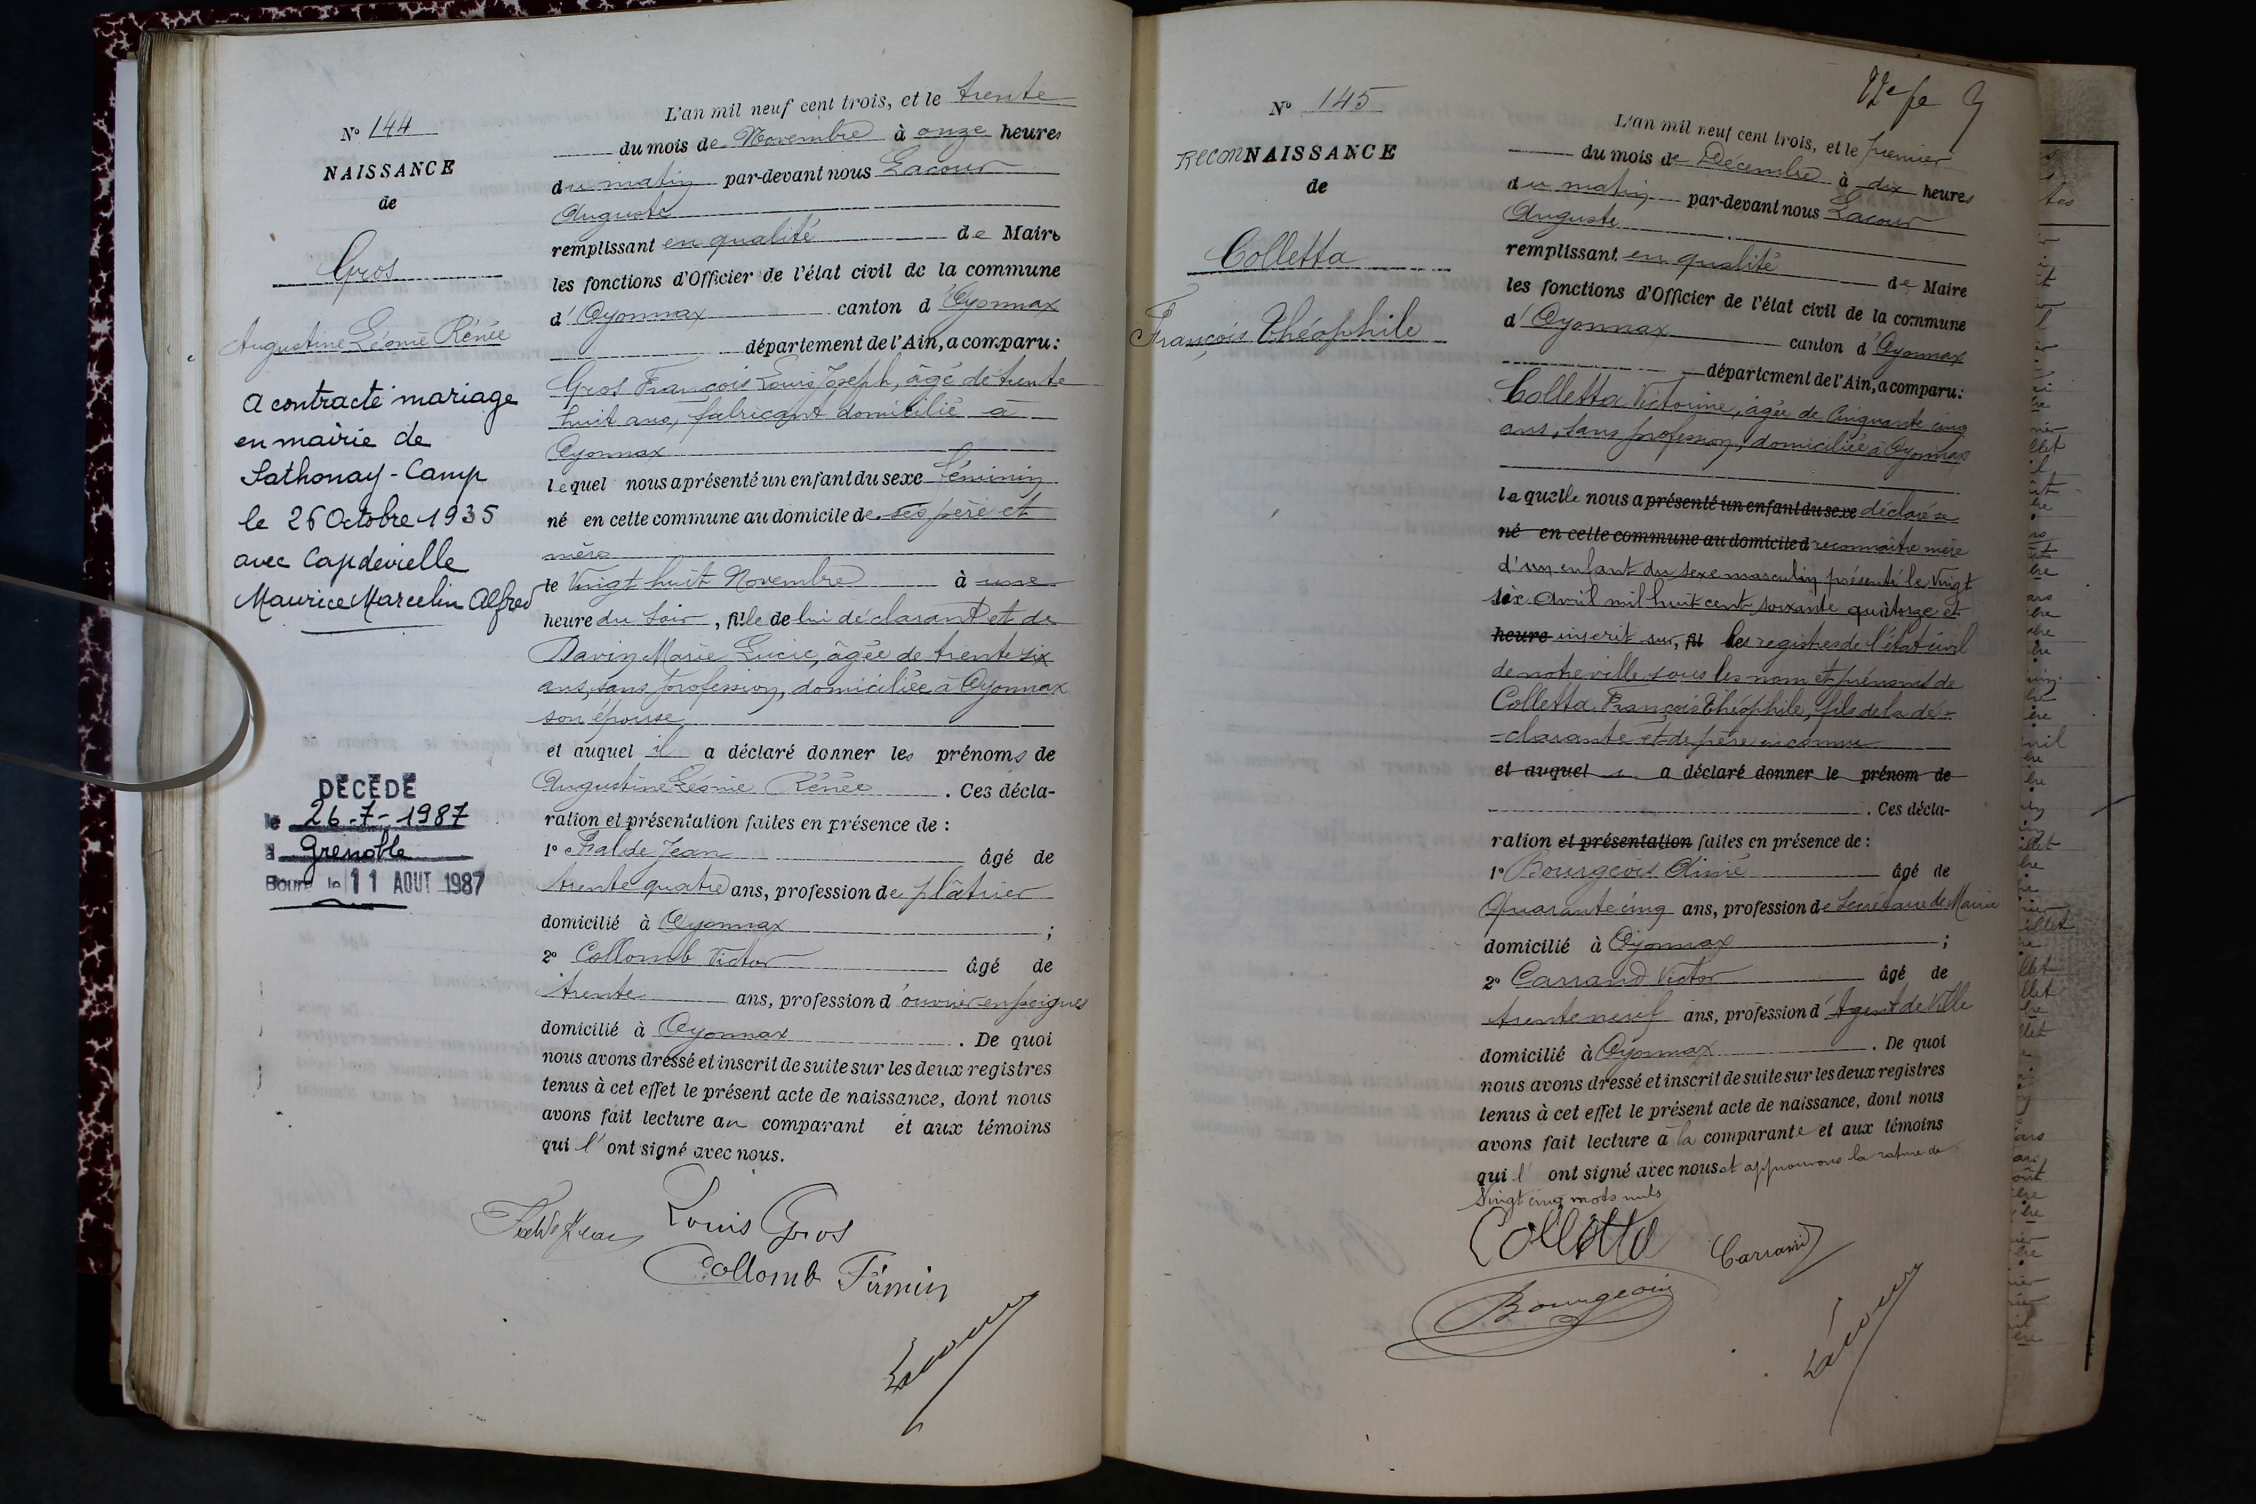 N° 144
NAISSANCE
de
Gros
Augustine Léonie Rénée
A contracté mariage
en mairie de
Sathonay-Camp
le 26 Octobre 1935
avec Capdevielle
Maurice Marcelin Alfred
DÉCÉDÉ
le 26-7-1987
à Grenoble
Bourg le 11 AOUT 1987
L'an mil neuf cent trois, et le trente
du mois de Novembre à onze heures
du matin par-devant nous Lacour
Auguste
remplissant en qualité de Maire
les fonctions d'Officier de l'état civil de la commune
d'Oyonnax canton d'Oyonnax
département de l'Ain, a comparu :
Gros François Louis Joseph, âgé de trente
huit ans, fabricant domicilié à
Oyonnax
lequel nous a présenté un enfant du sexe féminin
né en cette commune au domicile de ses père et
mère
le Vingt huit Novembre à une
heure du soir, fille de lui déclarant et de
Davin Marie Lucie, âgée de trente six
ans, sans profession, domiciliée à Oyonnax
son épouse
et auquel il a déclaré donner les prénoms de
Augustine Léonie Rénée . Ces décla-
ration et présentation faites en présence de :
1° Fialde Jean âgé de
trente quatre ans, profession de plâtrier
domicilié à Oyonnax ;
2° Collomb Victor âgé de
trente ans, profession d'ouvrier en peignes
domicilié à Oyonnax . De quoi
nous avons dressé et inscrit de suite sur les deux registres
tenus à cet effet le présent acte de naissance, dont nous
avons fait lecture au comparant et aux témoins
qui l'ont signé avec nous.
Louis Gros
Collomb Firmin
Lacour
N° 145
RECONNAISSANCE
de
Colletta
François Théophile
L'an mil neuf cent trois, et le premier
du mois de Décembre à dix heures
du matin par-devant nous Lacour
Auguste
remplissant en qualité de Maire
les fonctions d'Officier de l'état civil de la commune
d'Oyonnax canton d'Oyonnax
département de l'Ain, a comparu :
Colletta Victorine, âgée de Cinquante cinq
ans, sans profession, domiciliée à Oyonnax
laquelle nous a présenté un enfant du sexe déclaré se
né en cette commune au domicile d reconnaître mère
d'un enfant du sexe masculin présenté le Vingt
six avril mil huit cent soixante quatorze et
heure inscrit sur, fil les registres de l'état civil
de notre ville sous les nom et prénoms de
Colletta François Théophile, fils de la dé-
-clarante et de père inconnu
et auquel a déclaré donner le prénom de
. Ces décla-
ration et présentation faites en présence de :
1° Bourgeois Aimé âgé de
Quarante cinq ans, profession de Secrétaire de Mairie
domicilié à Oyonnax ;
2° Carrand Victor âgé de
trente neuf ans, profession d'Agent de Ville
domicilié à Oyonnax . De quoi
nous avons dressé et inscrit de suite sur les deux registres
tenus à cet effet le présent acte de naissance, dont nous
avons fait lecture à la comparante et aux témoins
qui l'ont signé avec nous et approuvons la rature de
Vingt cinq mots nuls
Colletta Carrand
Bourgeois
Lacour